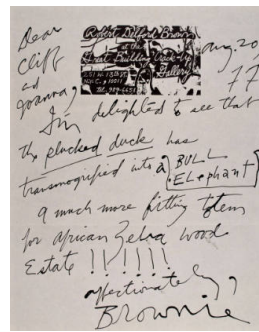 Dear
Cliff
and
Joanna,
Robert Delford Brown
at the
Great Building Crack-Up
Gallery
251 W. 13th ST
N.Y.C. 10011
Aug. 20,
77
I'm delighted to see that
the plucked duck has
transmogrified into a BULL
ELEphant
a much more fitting totem
for African Zebra Wood
Estate !!!!!!
affectionately,
Brownie